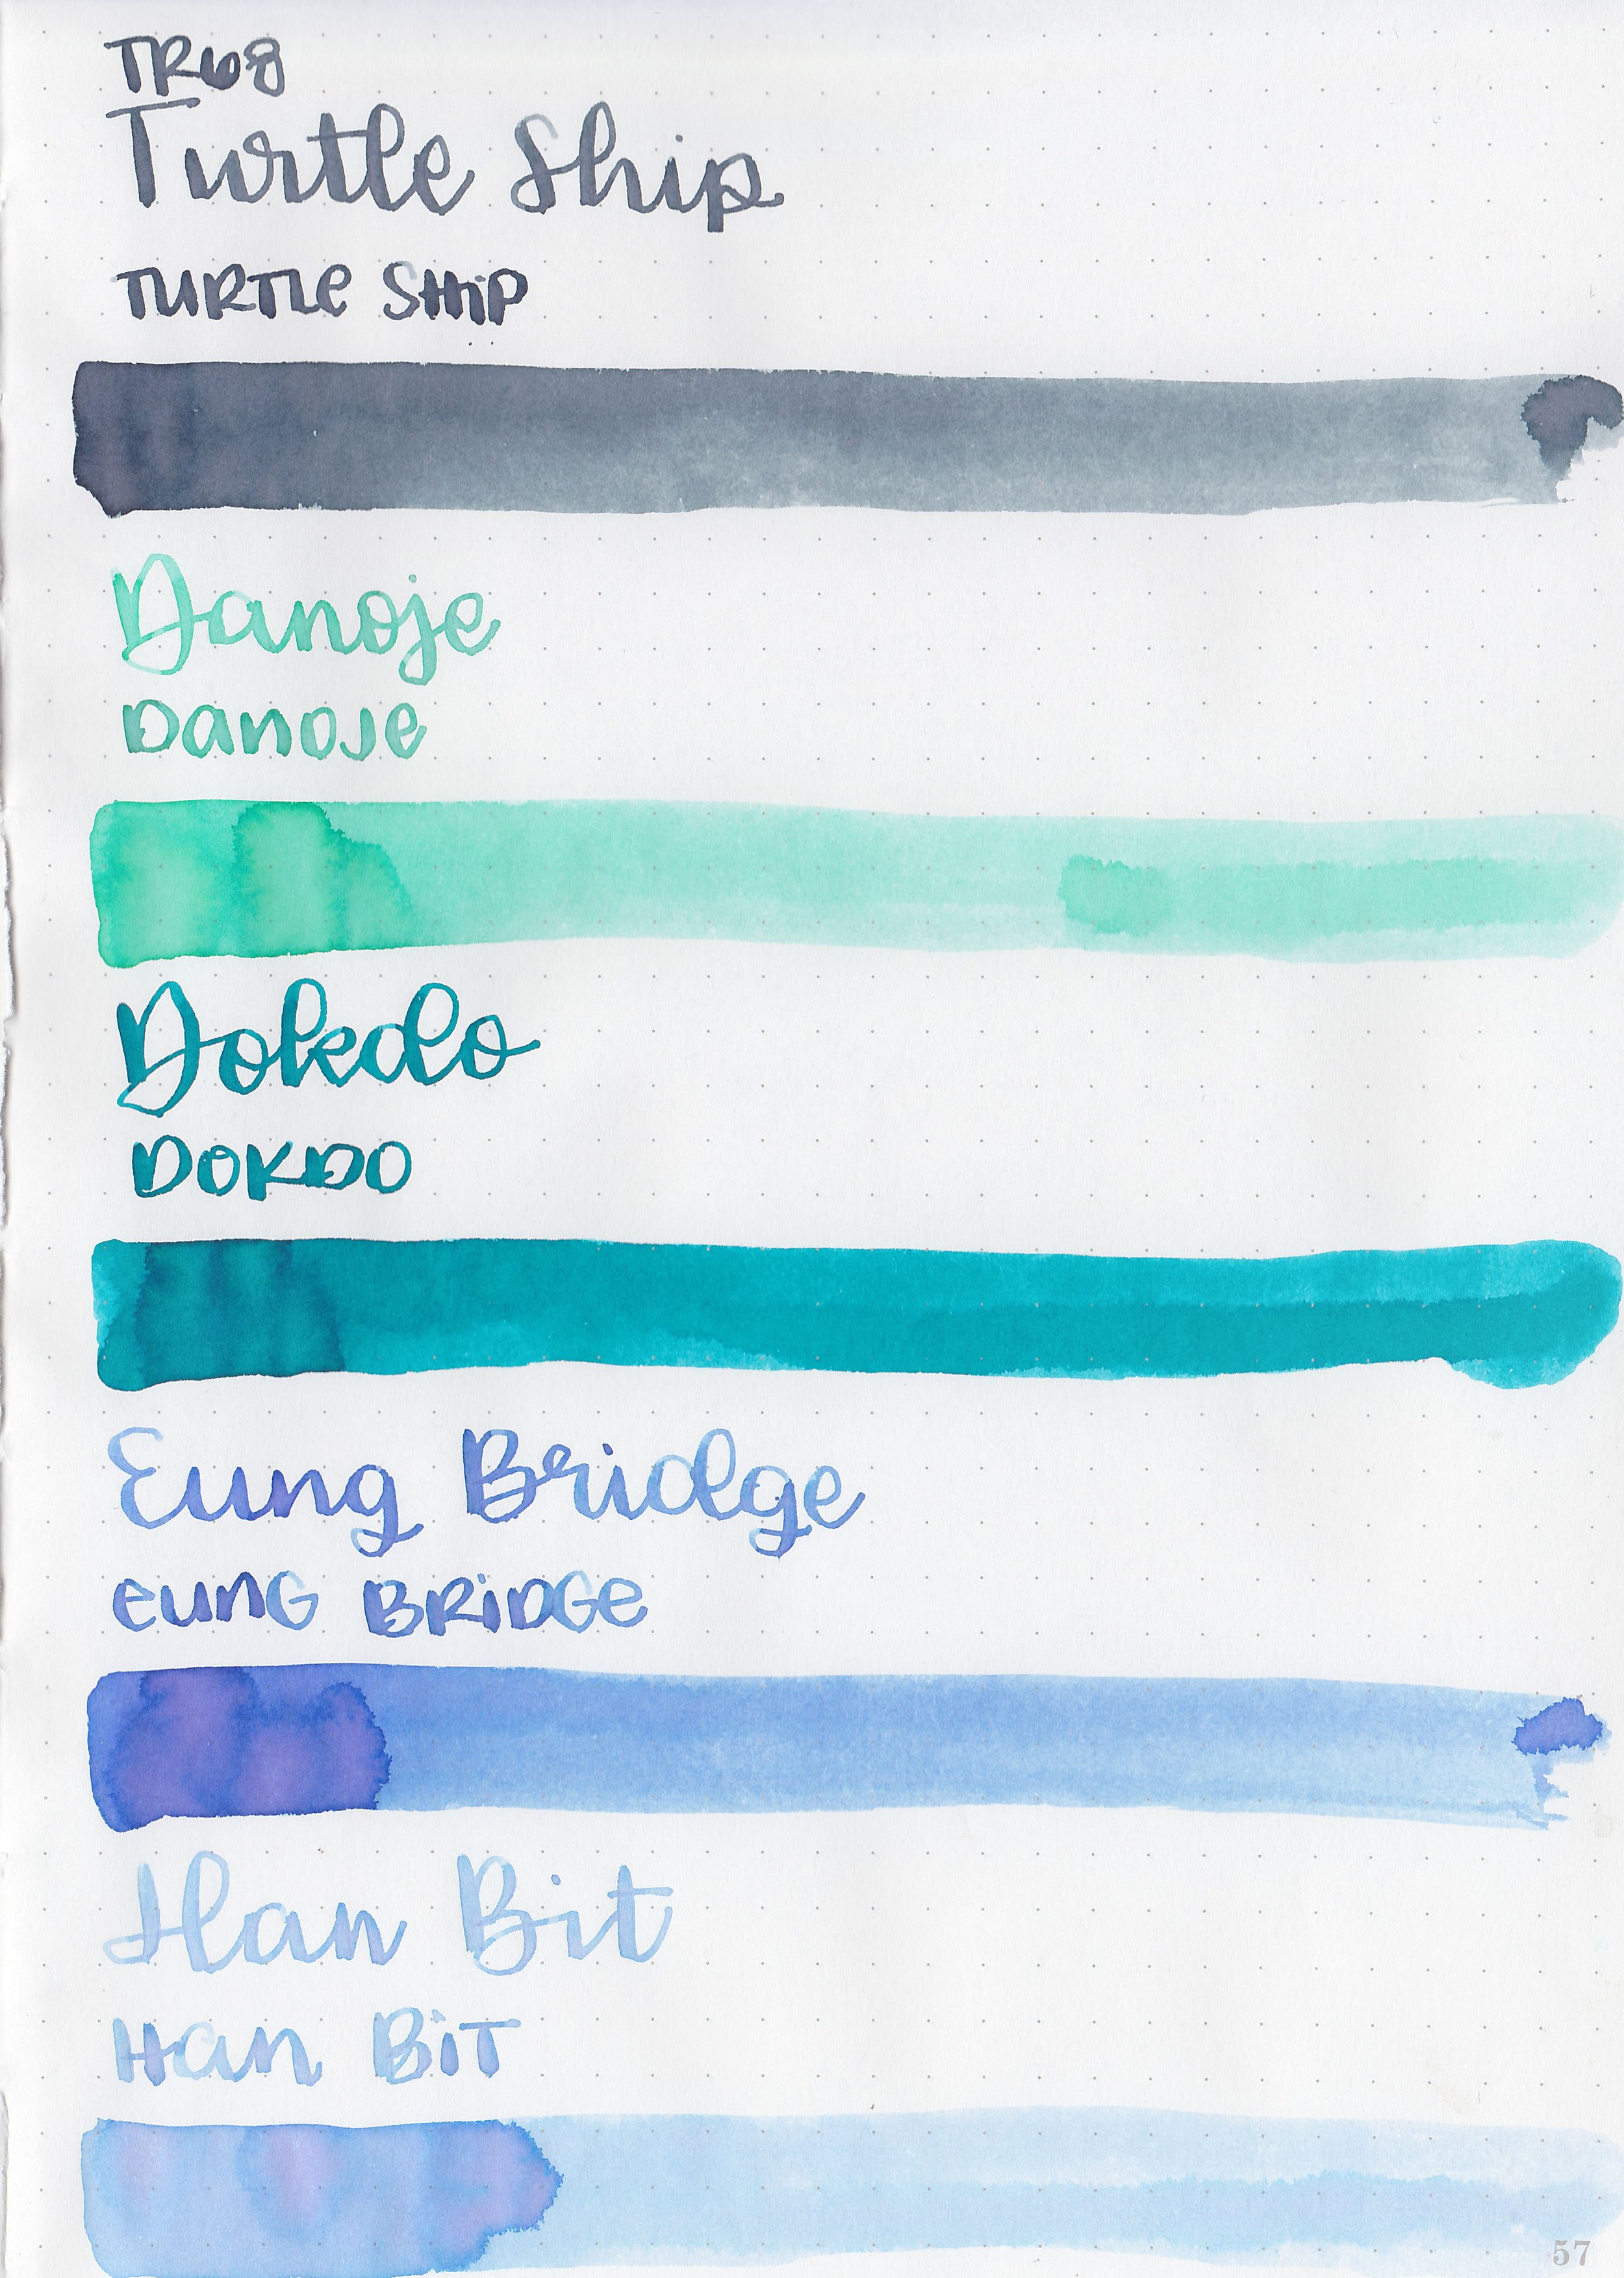 TR68
Turtle Ship
TURTLE SHIP
Danoje
DANOJE
Dokdo
DOKDO
Eung Bridge
EUNG BRIDGE
Han Bit
HAN BIT
57